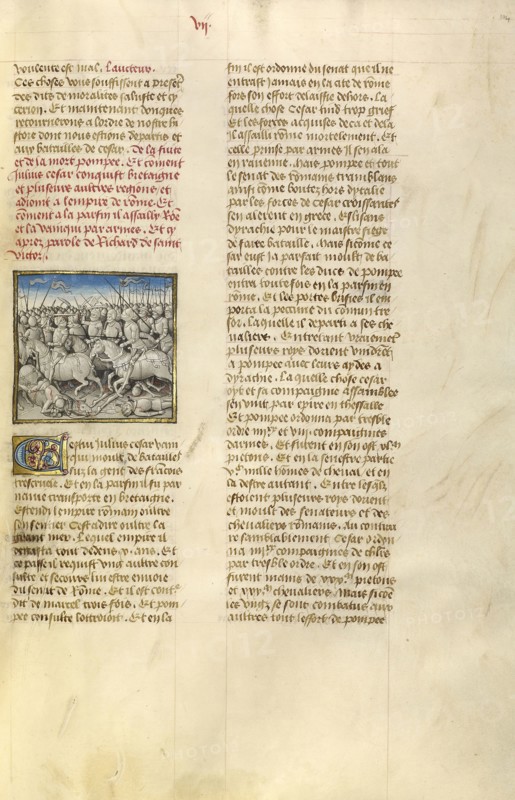 vii.
voulente est mal. Laucteur.
Ces choses vous souffisent a present
des dits de moralites saluste et cy
ceron. Et maintenant doncques
retournerons a lordre de nostre hi
stoire dont nous estions departis et
aux batailles de cesar. De la fuite
et de la mort pompee. Et coment
Julius cesar conquist bretaigne
et plusieurs aultres regions et
adioint a lempire de rome. Et
coment a la parfin il assailly Rome
et la vainqui par armes. Et cy
apres parole de Richard de saint
victor.
Cestui Julius cesar vain
qui moult de batailles
sur la gent des francois
Et en la parfin il fu par
navire transporte en bretaigne.
Estendi lempire romain oultre
Cestadire oultre la
grant mer. Lequel empire il
tout dedens .v. ans. Et
ce passe il requist ung aultre con
sulte et secours luy estre envoie
du senat de Rome. Et il est cont
dit de marcel trois fois. Et pom
pee consulte loitroioit. Et en la
fin il est ordonne du senat que il ne
entrast jamais en la cite de rome
fors son effort delaissie dehors. La
quelle chose Cesar tind trop grief
Et les forces acquises deca et dela
il assailli rome mortelement. Et
celle prinse par armes il sen ala
en ravenne. Mais pompee et tout
le senat des romains tremblans
ainsi come boutez hors dytalie
par les forces de cesar croissantes
sen alerent en grece. Eslisans
dyrachie pour le maistre siege
de faire bataille. Mais sicome ce
sar eust ja parfait moult de ba
tailles contre les ducs de pompee
entra toutefois en la parfin en
rome. Et les portes brisies il em
porta la peccune du commun tre
sor. Laquelle il departi a ses che
valiers. Entretant
plusieurs roys dorient vindrent
a pompee avec leurs aydes a
dyrachie. La quelle chose cesar
oyt et sa compaignie assamblee
sen vint par epire en thessalle
Et pompee ordonna par treble
ordre et compaignies
darmes. Et furent en son ost
pietons. Et en la senestre partie
mille homes de cheval et en
la destre autant. Entre lesquels
estoient plusieurs roys dorient
et moult des senateurs et des
chevaliers romains. Au contrai
re samblablement Cesar ordon
na compaignies de
par treble ordre. Et en son ost
furent mains de pietons
et chevaliers. Mais sicome
les ungz se sont combatus aux
aultres tout leffort de pompee